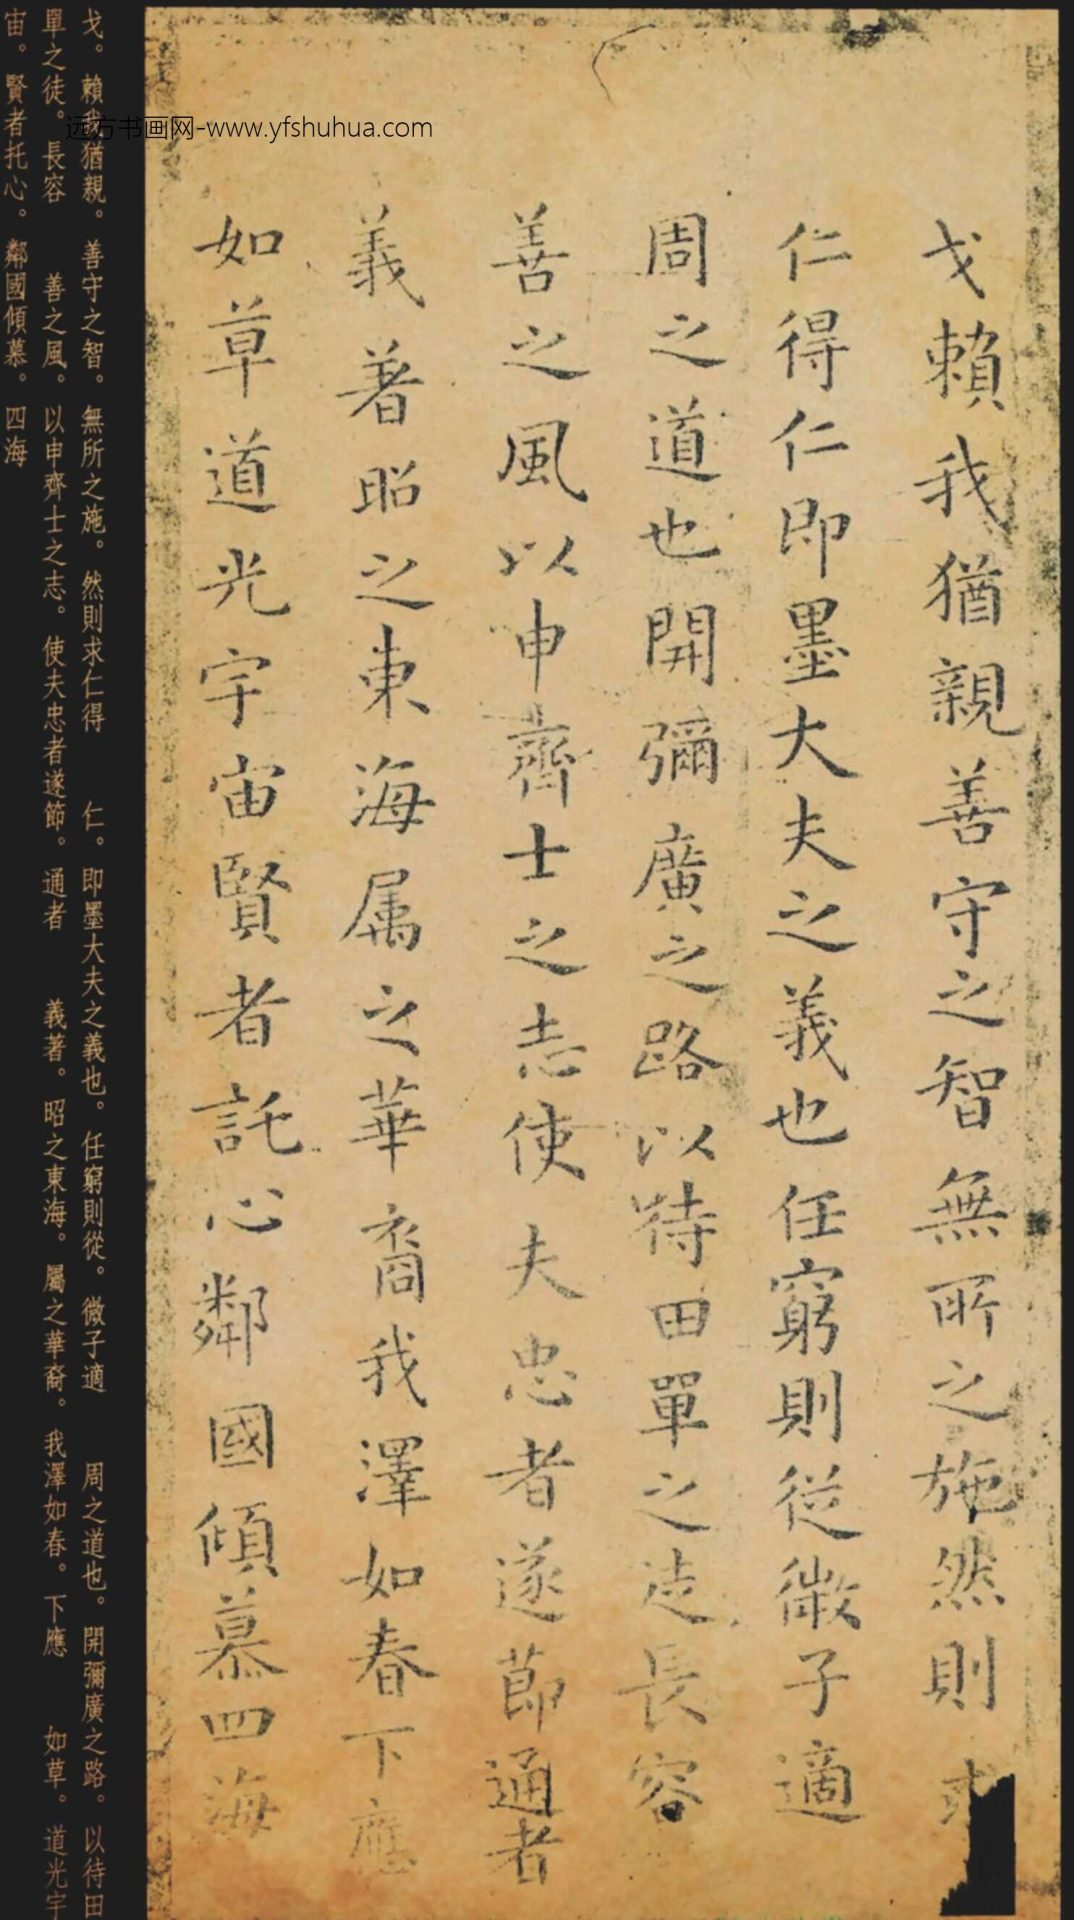 戈賴我猶親善守之智無所之施然則求
仁得仁即墨大夫之義也任窮則從微子適
周之道也開彌廣之路以待田單之徒長容
善之風以申齊士之志使夫忠者遂節通者
義著昭之東海属之華裔我澤如春下應
如草道光宇宙賢者託心鄰國傾慕四海
戈。賴我猶親。善守之智。無所之施。然則求仁得 仁。即墨大夫之義也。任窮則從。微子適 周之道也。開彌廣之路。以待田
單之徒。長容 善之風。以申齊士之志。使夫忠者遂節。通者 義著。昭之東海。屬之華裔。我澤如春。下應 如草。道光宇
宙。賢者托心。鄰國傾慕。四海
远方书画网-www.yfshuhua.com